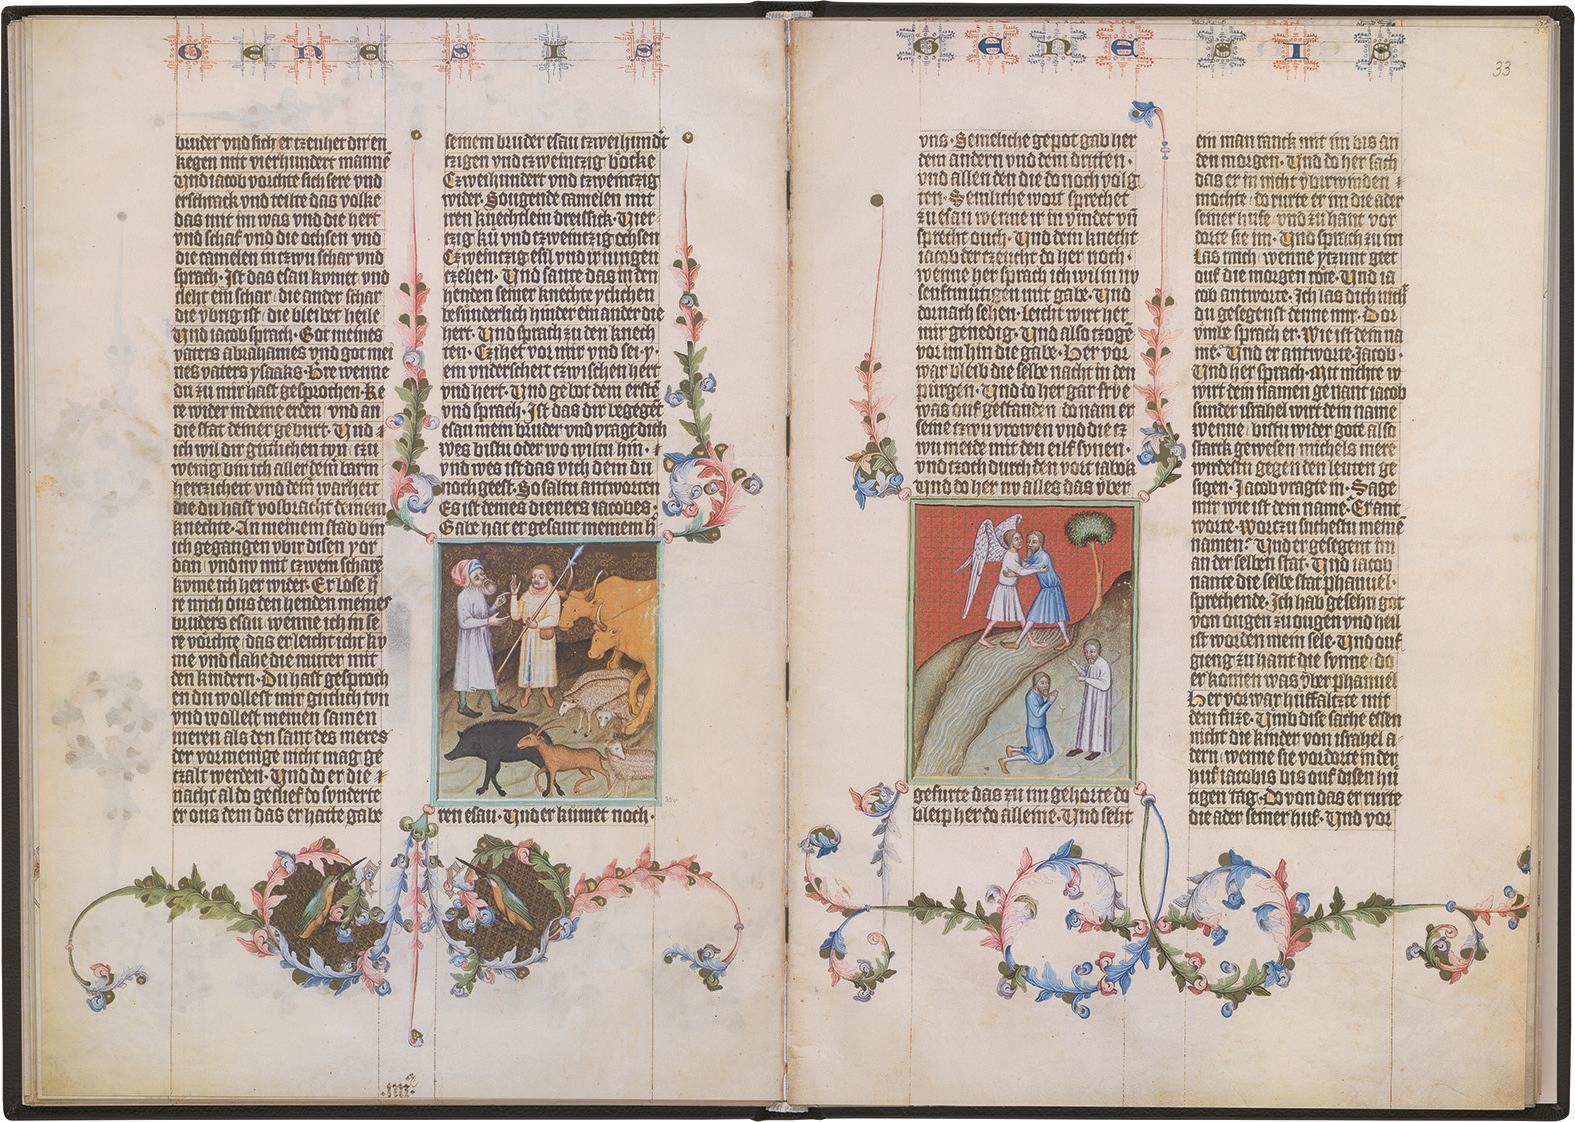 GENESIS
bruder vnd sich er tzeuhet dir en
kegen mit vierhundert manne
Vnd iacob vorchte sich sere vnd
erschrack vnd teilte das volke
das mit im was vnd die hert
vnd schaf vnd die ochsen vnd
die camelen in tzwu schar vnd
sprach· Ist das esau kvmet vnd
sleht ein schar die ander schar
die vbrig ist die bleibet heile
Vnd iacob sprach· Got meines
vaters abrahames vnd got mei
nes vaters ysaaks· Hre wenne
du zu mir hast gesprochen· Ke
re wider in deine erden vnd an
die stat deiner geburt· Vnd
ich wil dir gutlichen tvn tzu
wenig bin ich aller deiner barm
hertzicheit vnd deiner warheit
die du hast volbracht deinem
knechte· An meinem stab bin
ich gegangen vbir disen yor
dan vnd nv mit tzwein scharen
kvme ich her wider· Erlose h
re mich ous den henden meines
bruders esau wenne ich in se
re vorchte das er leicht icht kv
me vnd slahe die mutter mit
den kindern· Du hast gesproch
en du wollest mir gutlich tvn
vnd wollest meinen samen
meren als den sant des meres
der vor menige nicht mag ge
tzalt werden· Vnd do er die
nacht al do geslief do svnderte
er ous dem das er hatte gabe
seinem bruder esau tzweihundt
tzigen vnd tzweintzig bocke
Tzweihundert vnd tzweintzig
wider· Sougende camelen mit
iren knechtlein dreissick· Vier
tzig ku vnd tzweintzig ochsen
Tzweintzig esil vnd ir iungen
tzehen· Vnd sante das in den
henden seiner knechte yclichen
besunderlich hinder ein ander die
hert· Vnd sprach zu den knech
ten· Tzihet vor mir vnd sei·y·
ein vnderscheit tzwischen hert
vnd hert· Vnd gebot dem ersten
vnd sprach· Ist das dir begeget
esau mein bruder vnd vragt dich
wes bistu oder wo wiltu hin·
vnd wes ist das vich dem du
noch geest· So saltu antworten
Es ist deines dieners iacobes·
Gabe hat er gesant meinem h
ren esau· Vnd er kumet noch·
GENESIS
33
vns· Semeliche gepot gab her
dem andern vnd dem dritten·
vnd allen den die do noch volg
ten· Semliche wort sprechet
zu esau wenne ir in vindet vn
sprecht ouch· Vnd dein knecht
iacob der tzeucht do her noch·
wenne her sprach ich wil in nv
senftmutigen mit gabe· Vnd
dornach sehen· Leicht wirt her
mir genedig· Vnd also tzoge
vor im hin die gabe· Her vor
war bleib die selbe nacht in den
purgen· Vnd do her gar frve
was ouf gestanden do nam er
seine tzwu vrowen vnd die tz
wu meide mit den eilf svnen·
vnd tzoch durch den vort iabok
Vnd do her nv alles das vber
gefurte das zu im gehorte do
bleip her do alleine· Vnd seht
ein man ranck mit im bis an
den morgen· Vnd do her sach
das er in nicht vbirwinden
mochte do rurte er im die ader
seiner hufe vnd zu hant vor
dorte sie im· Vnd sprach zu im
Las mich wenne ytzunt geet
ouf die morgen rote· Vnd ia
cob antworte· Ich las dich nich
du gesegenst denne mir· Dor
vmbe sprach er· Wie ist dein na
me· Vnd er antworte· Jacob·
Vnd her sprach· Mit nichte w
wirt dein namen genant iacob
sunder israhel wirt dein name
wenne bistu wider gote also
starck gewesen michels mere
wirdestu gegen den leuten ge
sigen· Jacob vragte in· Sage
mir wie ist dein name· Er ant
worte· Worzu suchestu meinen
namen· Vnd er gesegent im
an der selben stat· Vnd iacob
nante die selbe stat phanuel·
sprechende· Ich hab gesehn got
von ougen zu ougen vnd heil
ist worden mein sele· Vnd ouf
gieng zu hant die svnne do
er komen was vber phanuel
Her vorwar huffaltzte mit
dem fuze· Vmb dise sache essen
nicht die kinder von israhel a
dern wenne sie vordorte in der
huf iacobis bis ouf disen hu
tigen tag· Do von das er rurte
die ader seiner huf· Vnd vor